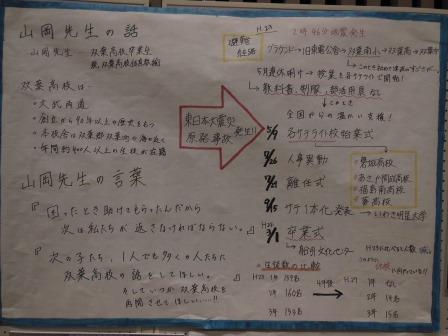 山岡先生の話
山岡先生……双葉高校卒業生
双葉高校は…
・文武両道
・創立から92年以上の歴史をもつ
・本校舎は双葉郡双葉町の海の近く
・年間約400人以上の生徒が在籍
山岡先生の言葉
『困ったとき助けてもらったんだから
次は私たちが返さなければならない。』
『次の子たち、1人でも多くの人たちに
双葉高校の話をしてほしい。
そしていつか双葉高校を
再開させてほしい…!!』
東日本大震災
原発事故
発生!!
H.23
2時46分地震発生
避難
経路
グラウンド→旧東電公舎→双葉南小→双葉高→
5月連休明け→授業を各サテライトで開始!
教科書、制服、部活用具など
このとき
全国からの温かい支援!
5/9
各サテライト校始業式
人事異動
離任式
サテ1本化発表→いわき明星大学
卒業式
磐城高校
あさか開成高校
福島南高校
葵高校
生徒数の比較
H.23
1年 159名
2年 160名
3年 153名
4年後
→
H.27
1年 なし
2年 14名
3年 15名